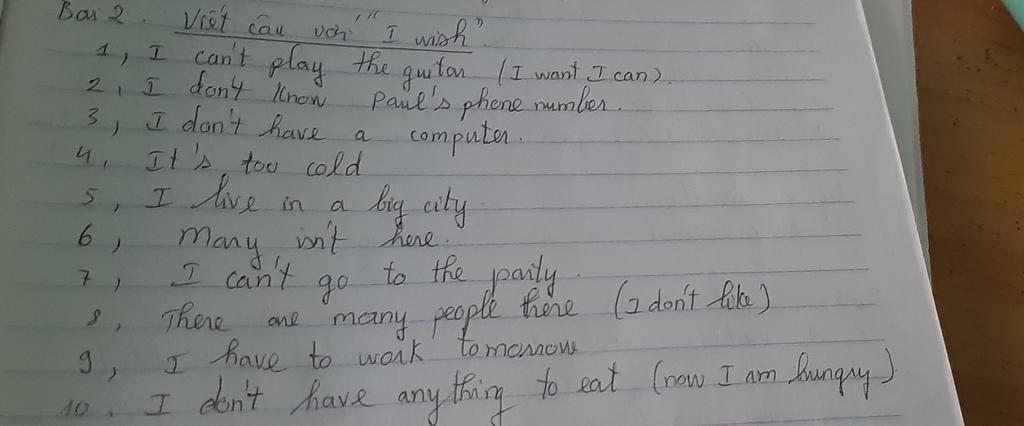 Bài 2. Viết câu với "I wish".
1, I can't play the guitar (I want I can).
2, I don't know Paul's phone number.
3, I don't have a computer.
4, It's too cold
5, I live in a big city
6, Mary isn't here.
7, I can't go to the party.
8, There are many people here (I don't like)
9, I have to work tomorrow
10, I don't have anything to eat (now I am hungry).